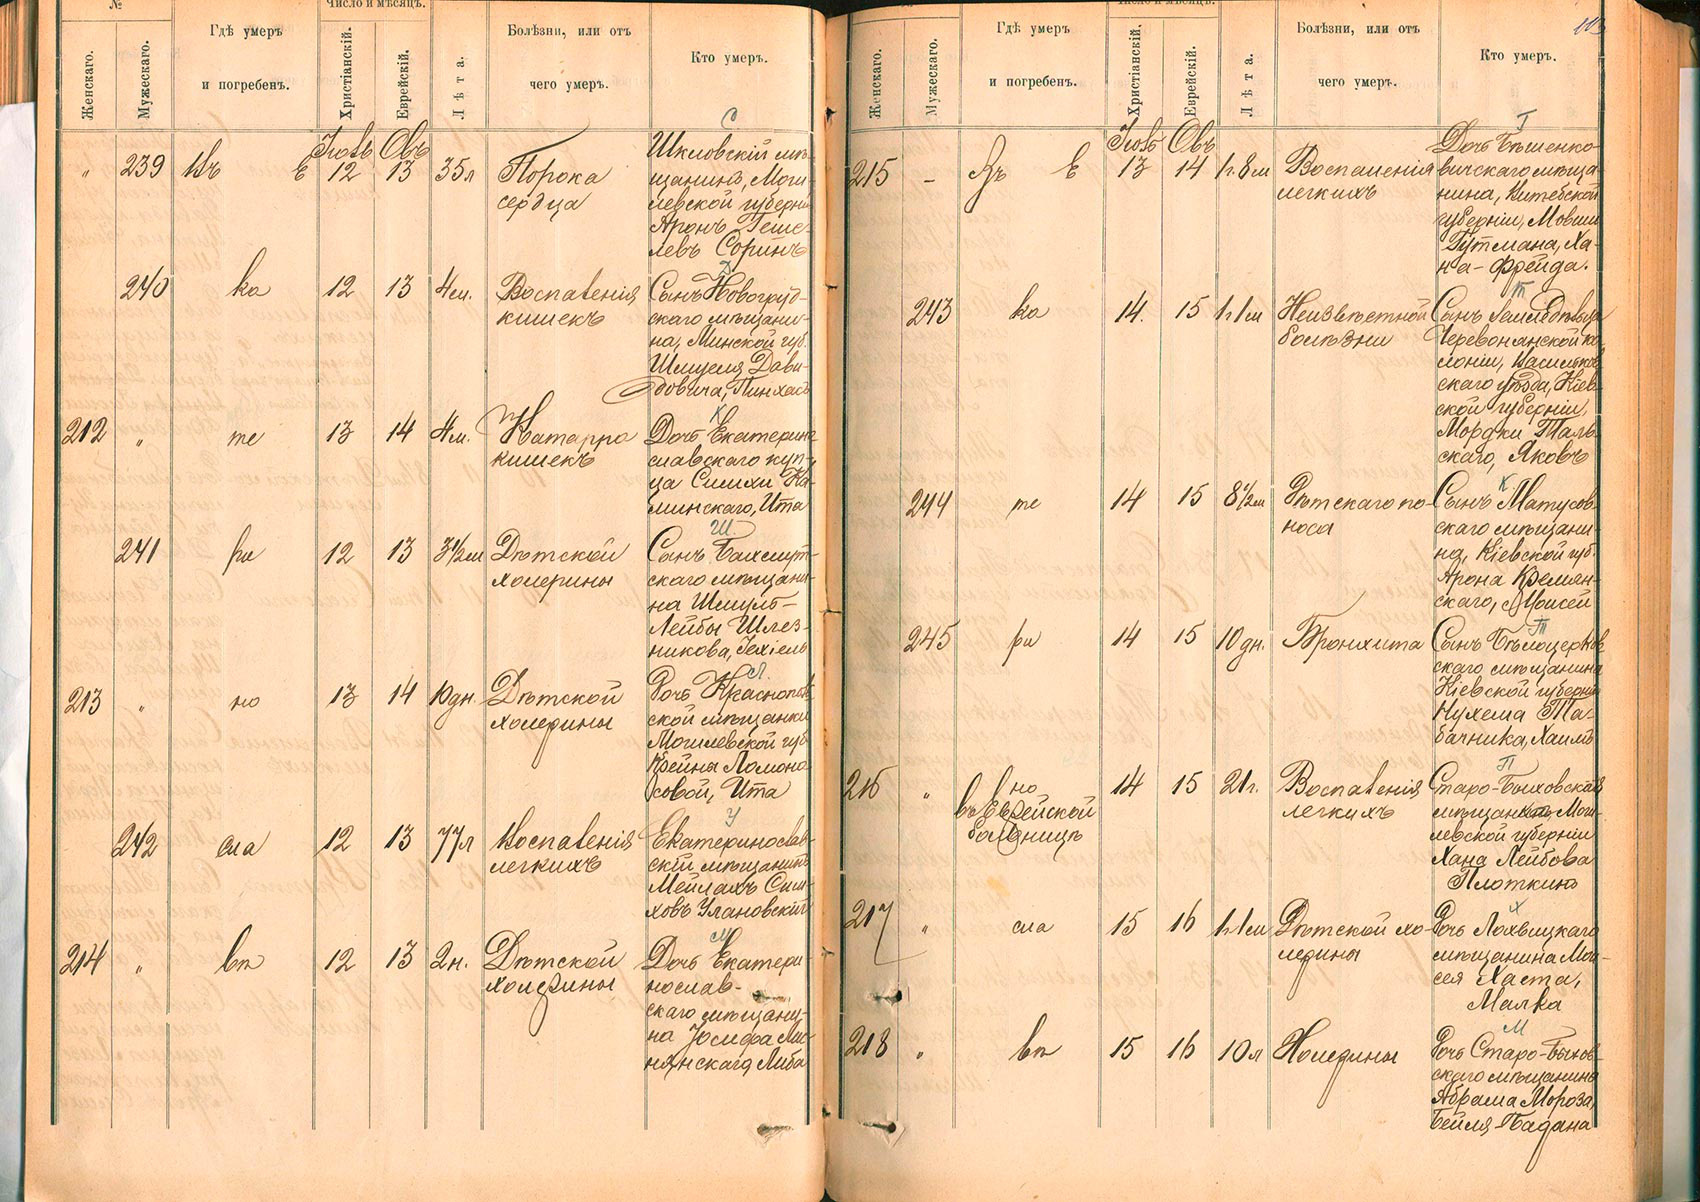 №
Число и мѣсяцъ.
Женскаго.
Мужескаго.
Гдѣ умеръ
и погребенъ.
Христіанскій.
Еврейскій.
Лѣта.
Болѣзни, или отъ
чего умеръ.
Кто умеръ.
С
" 239 Въ Е 12 13 35л Порока
сердца
Шкловскій мѣ-
щанинъ, Моги-
левской губерніи
Аронъ Геше-
левъ Соринъ
Д
240 ка 12 13 4м. Воспаленія
кишекъ
Сынъ Новогруд-
скаго мѣщани-
на, Минской губ.
Шмуеля Дави-
довича, Пинхасъ
К
212 " те 13 14 4м. Катарра
кишекъ
Дочь Екатерино-
славскаго куп-
ца Симхи Ка-
минскаго, Ита
Ш
241 ри 12 13 3½м Дѣтской
холерины
Сынъ Бахмут-
скаго мѣщани-
на Шмуль-
Лейбы Шлез-
никова, Іехіель
Л
213 " но 13 14 10дн. Дѣтской
холерины
Дочь Краснополь-
ской мѣщанки
Могилевской губ
Крейны Ломоно-
совой, Ита
У
242 сла 12 13 77л Воспаленія
легкихъ
Екатеринослав-
скій мѣщанинъ
Мейлахъ Сим-
ховъ Улановскій
М
214 " вѣ 12 13 2н. Дѣтской
холерины
Дочь Екатери-
нослав-
скаго мѣщани-
на Іосифа
Либа
113
Число и мѣсяцъ.
Женскаго.
Мужескаго.
Гдѣ умеръ
и погребенъ.
Христіанскій.
Еврейскій.
Лѣта.
Болѣзни, или отъ
чего умеръ.
Кто умеръ.
Г
215 - Въ Е 13 14 1г.8м Воспаленія
легкихъ
Дочь Бѣшенко-
вичскаго мѣща-
нина, Витебской
губерніи, Мовши
Гутмана, Ха-
на-Фрейда.
Т
243 ка 14. 15 1г1м Неизвѣстной
болѣзни
Сынъ Земледѣльца
Червонянской ко-
лоніи, Васильков-
скаго уѣзда, Кіев-
ской губерніи,
Мордки Таль-
скаго, Яковъ
К
244 те 14 15 8½м Дѣтскаго по-
носа
Сынъ Матусов-
скаго мѣщани-
на, Кіевской губ.
Арона Кремян-
скаго, Моисей
Т
245 ри 14 15 10дн. Бронхита
Сынъ Бѣлоцерков-
скаго мѣщанина
Кіевской губерніи
Нухема Та-
бачника, Хаимъ
П
216 " но
въ Еврейской
больницѣ
14 15 21г. Воспаленія
легкихъ
Старо-Быховская
мѣщанка, Моги-
левской губерніи
Хана Лейбова
Плоткинъ
Х
217 " сла 15 16 1г1м Дѣтской хо-
лерины
Дочь Лохвицкаго
мѣщанина Мои-
сея Хаста,
Малка
М
218 " вѣ 15 16 10л Холерины
Дочь Старо-Быхов-
скаго мѣщанина
Абрама Мороза,
Бейля-Бадана